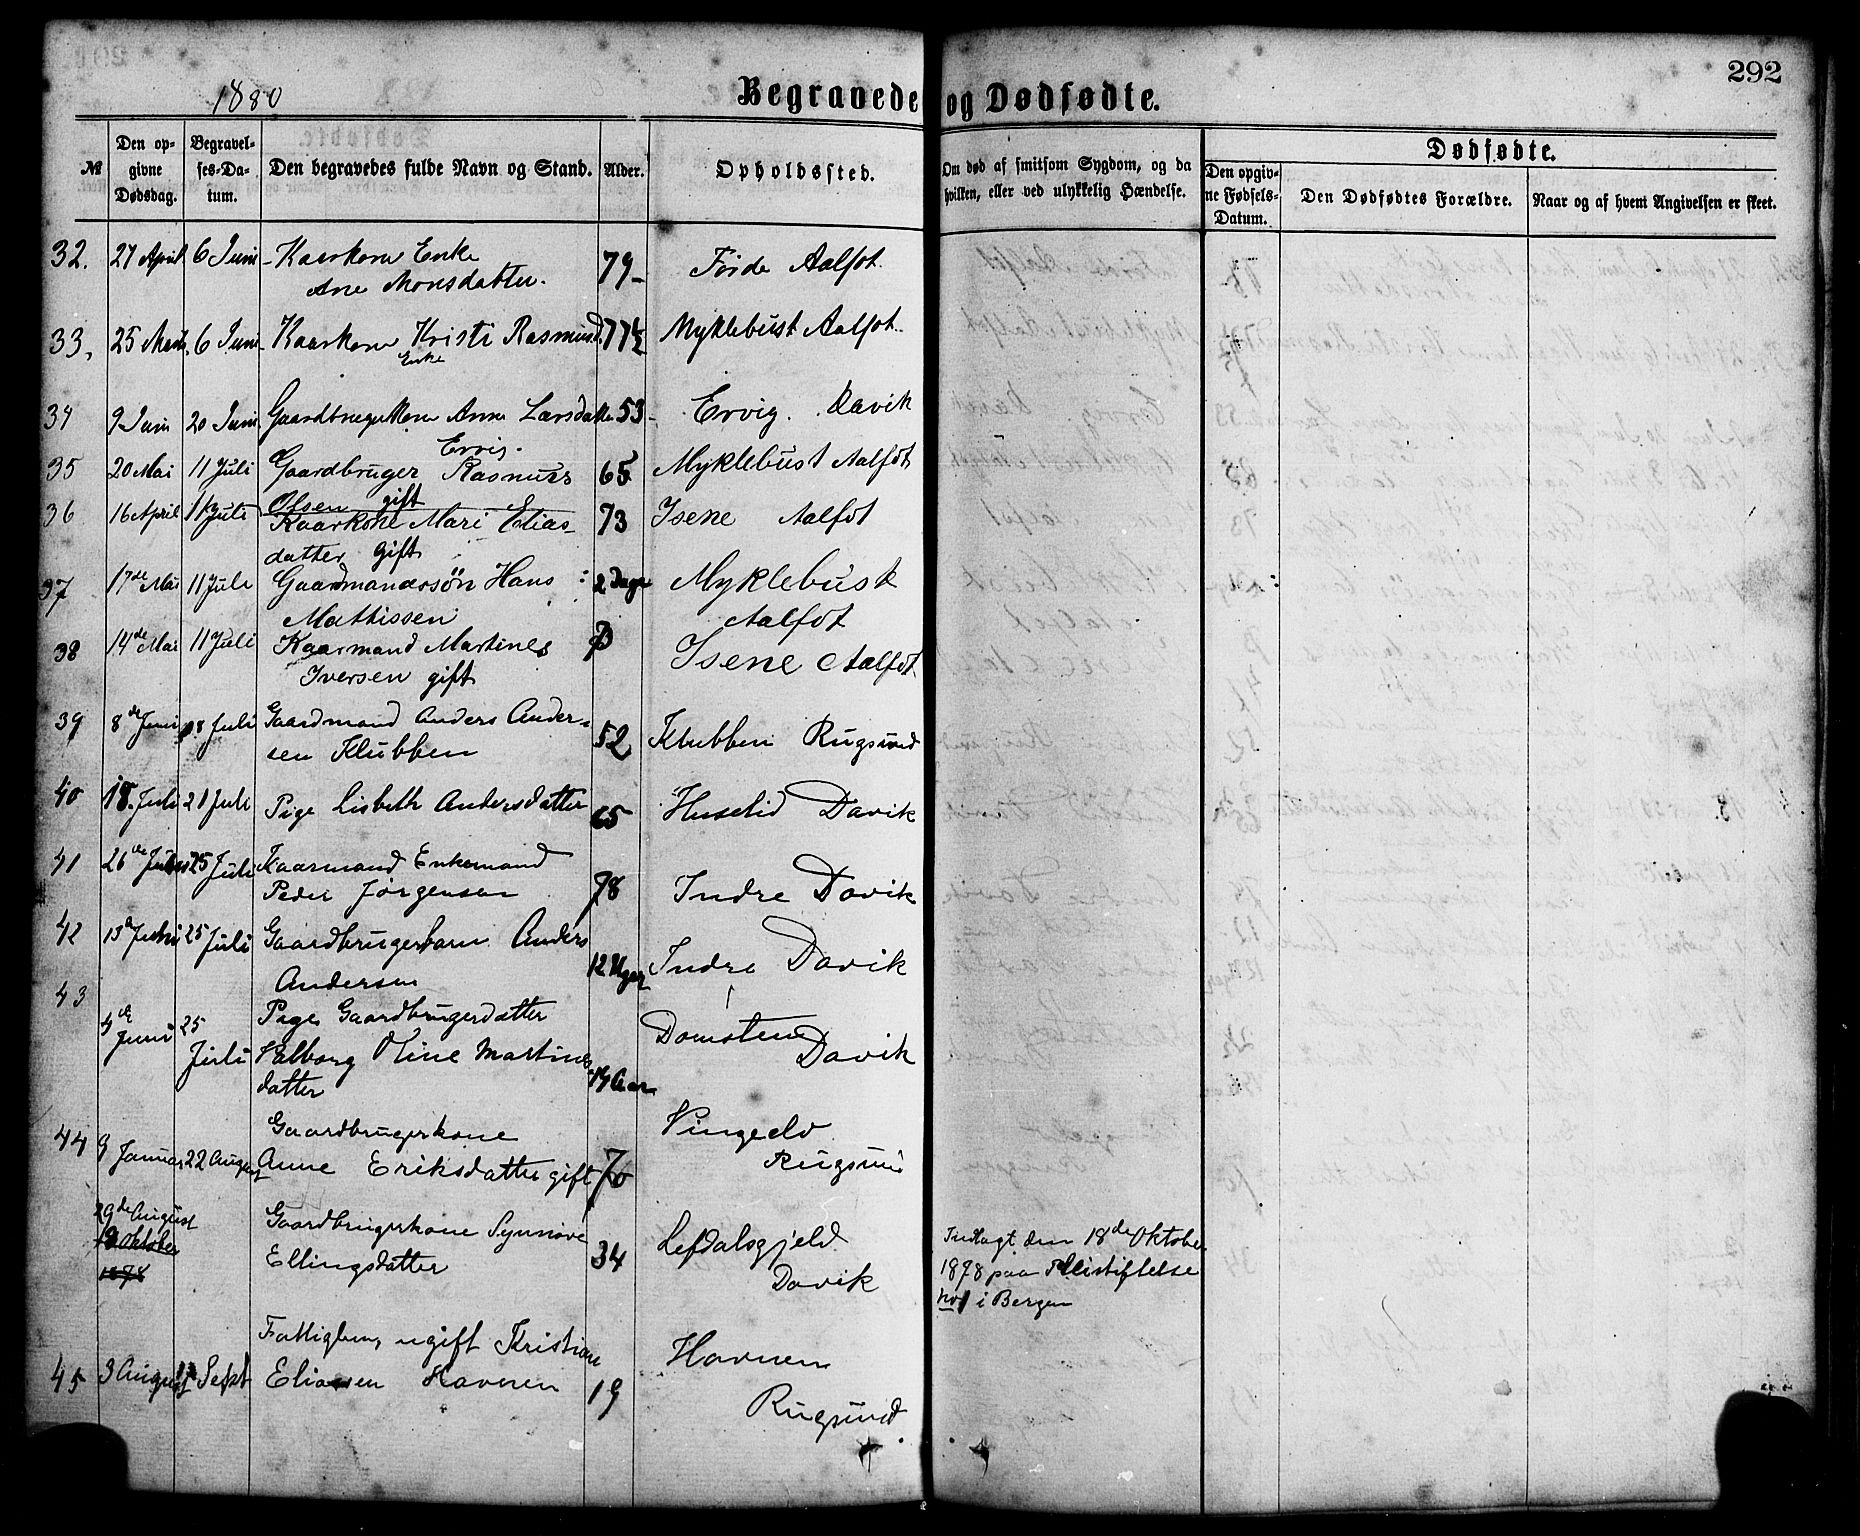 292
1880
Begravede og Dødfødte.
№
Den opgivne Dødsdag.
Begravelses-Datum.
Den begravedes fulde Navn og Stand.
Alder.
Opholdssted.
Om død af smitsom Sygdom, og da hvilken, eller ved ulykkelig Hændelse.
Dødfødte.
Den opgivne Fødsels-Datum.
Den Dødfødtes Forældre.
Naar og af hvem Angivelsen er skeet.
32. 27 April 6 Juni Kaarkone Enke 79 Førde Aalfot
Ane Monsdatter.
33. 25 6 Juni Kaarkone Kristi Rasmusd. 77½ Myklebust Aalfot
Enke
34 9 Juni 20 Juni Anne Larsdatter 53 Ervig. Davik
Ervig.
35 20 Mai 11 Juli Gaardbruger Rasmus 65 Myklebust Aalfot
Olsen gift
36 16 April 11 Juli Kaarkone Mari Elias- 73 Isene Aalfot
datter gift
37 17de Mai 11 Juli Gaardmandssøn Hans 2 Dage Myklebust
Mathissen Aalfot
38 14de Mai 11 Juli Kaarmand Martines 73 Isene Aalfot
Iversen gift
39 8de Juni 18 Juli Gaardmand Anders Ander- 52 Klubben Rugsund
sen Klubben
40 18. Juli 21 Juli Pige Lisbeth Andersdatter 65 Huselid Davik
41 26de 25 Juli Kaarmand Enkemand
Peder Jørgensen 78 Indre Davik
42 13de 25 Juli Gaardbrugerbarn Anders 12 Uger Indre Davik
Andersen
43 4de Juni 25 Juli Pige Gaardbrugerdatter Domsten
Valborg Oline Martines 14 Aar Davik
datter
44 9 Januar 22 August Gaardbrugerkone Vingelv
Anne Eriksdatter gift 70 Rugsund
29de August Gaardbrugerkone Synnøve Lefdalsgjeld
Oktober 1878 Ellingsdatter 34 Davik
Indlagt den 18de Oktober
1878 paa Pleiestiftelse
no 1 i Bergen
Fattiglem, ugift Kristian Havnen
45 3 August Sept Eliassen Havnen 19
Rugsund